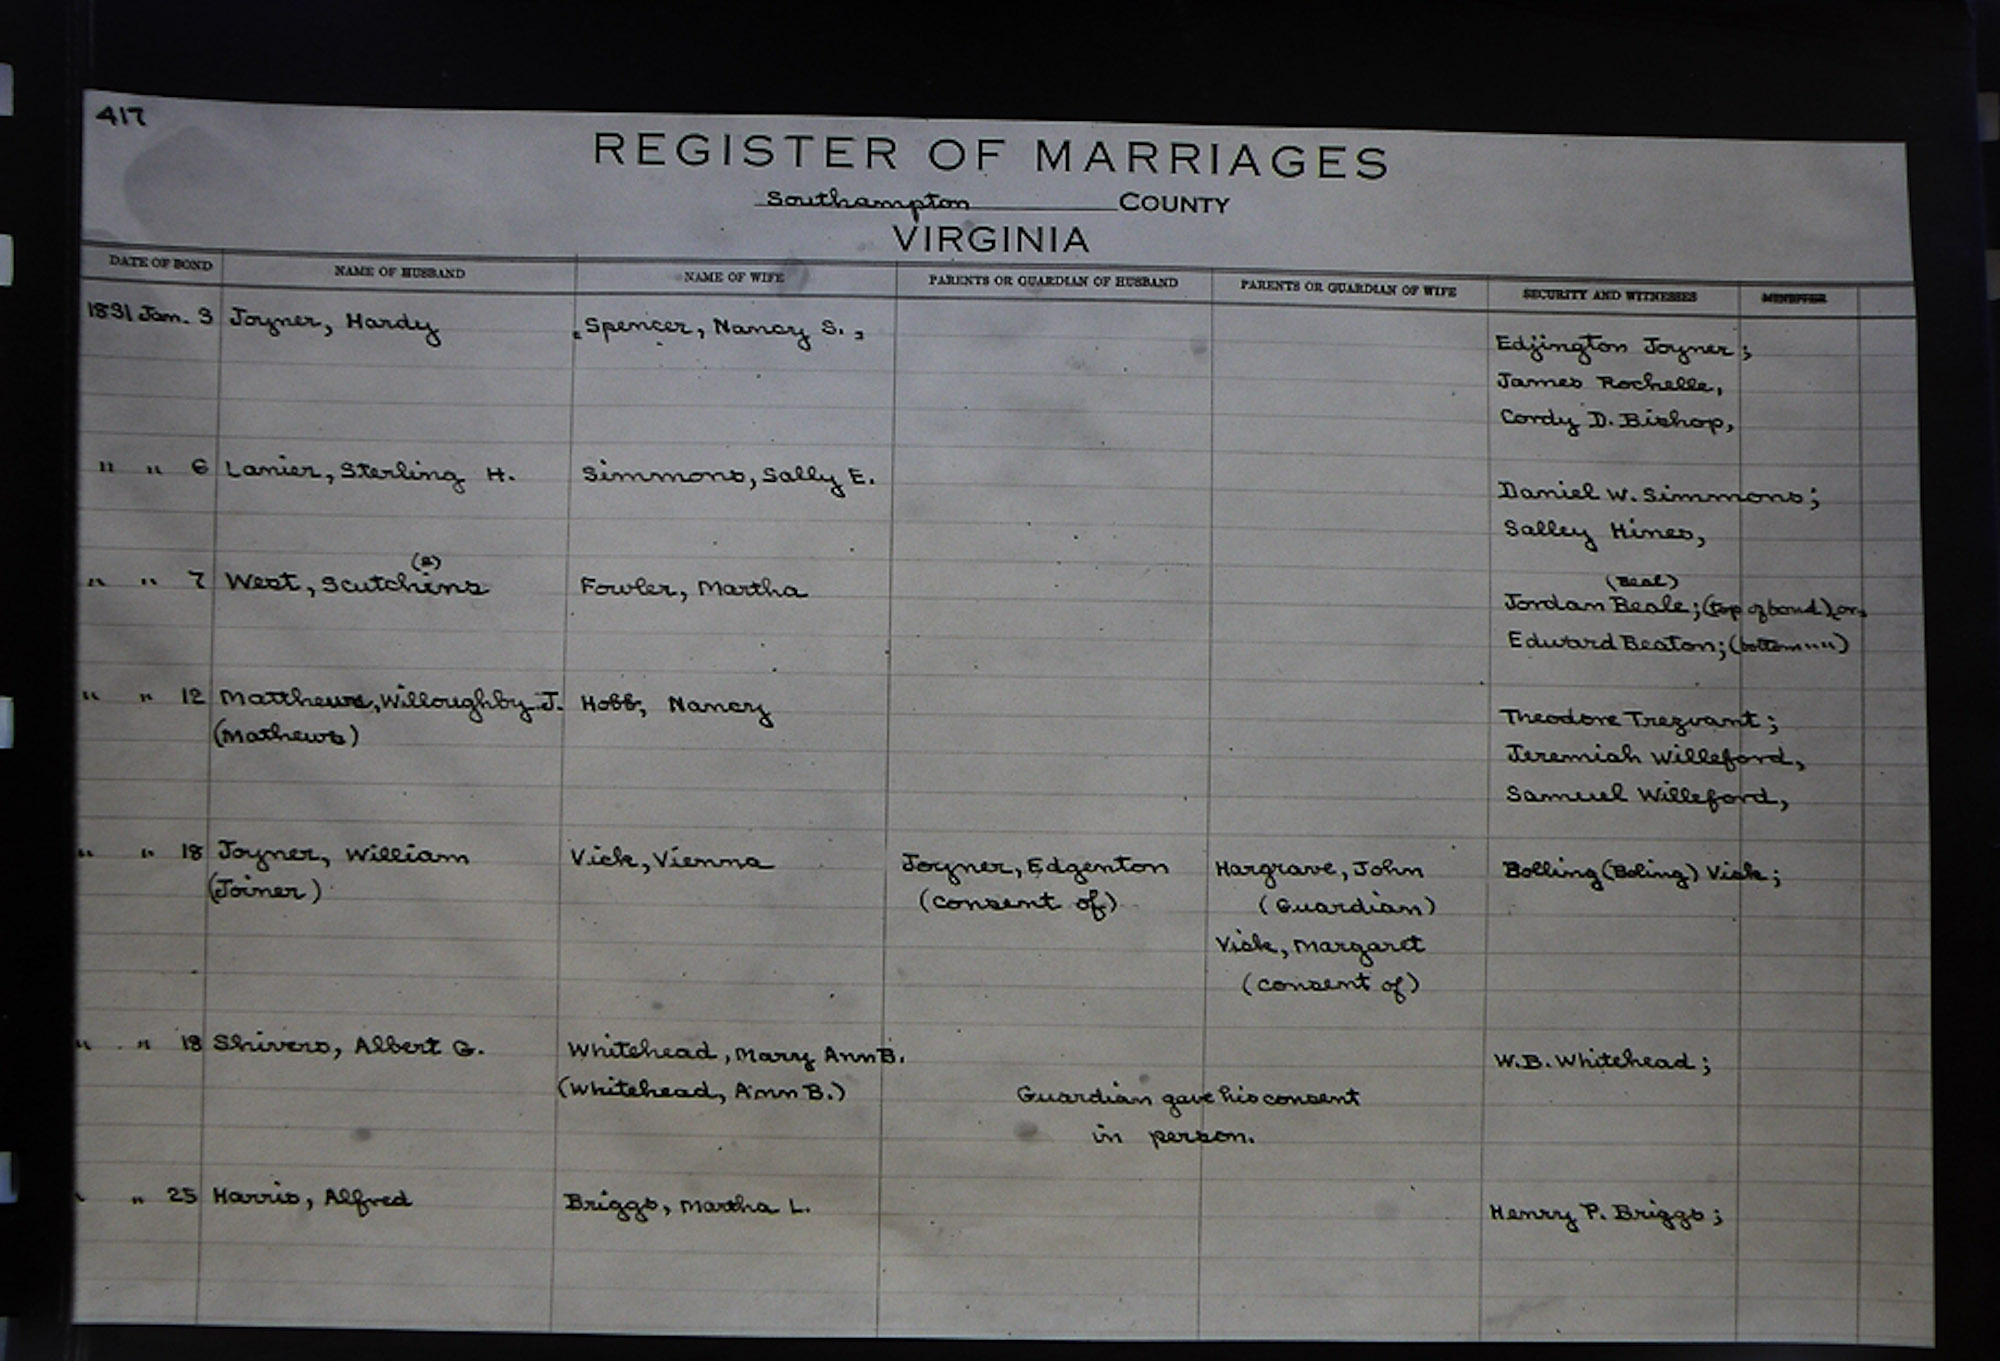 417
REGISTER OF MARRIAGES
Southampton COUNTY
VIRGINIA
DATE OF BOND NAME OF HUSBAND NAME OF WIFE PARENTS OR GUARDIAN OF HUSBAND PARENTS OR GUARDIAN OF WIFE SECURITY AND WITNESSES MINISTER
1831 Jan. 3 Joyner, Hardy Spencer, Nancy S.,
Edjington Joyner;
James Rochelle,
Cordy D. Bishop,
" " 6 Lanier, Sterling H. Simmons, Sally E.
Daniel W. Simmons;
Salley Hines,
" " 7 West, Scutchins Fowler, Martha
(Beal)
Jordan Beale; (top of bond), or,
Edward Beaton; (bottom " ")
" " 12 Matthews, Willoughby J. Hobb, Nancy
(Mathews)
Theodore Trezvant;
Jeremiah Willeford,
Samuel Willeford,
" " 18 Joyner, William Vick, Vienna Joyner, Edgenton Hargrave, John Bolling (Boling) Vick;
(Joiner) (consent of) (Guardian)
Vick, Margaret
(consent of)
" " 18 Shivers, Albert G. Whitehead, Mary Ann B. W.B. Whitehead;
(Whitehead, Ann B.) Guardian gave his consent
in person.
" " 25 Harris, Alfred Briggs, Martha L. Henry P. Briggs;